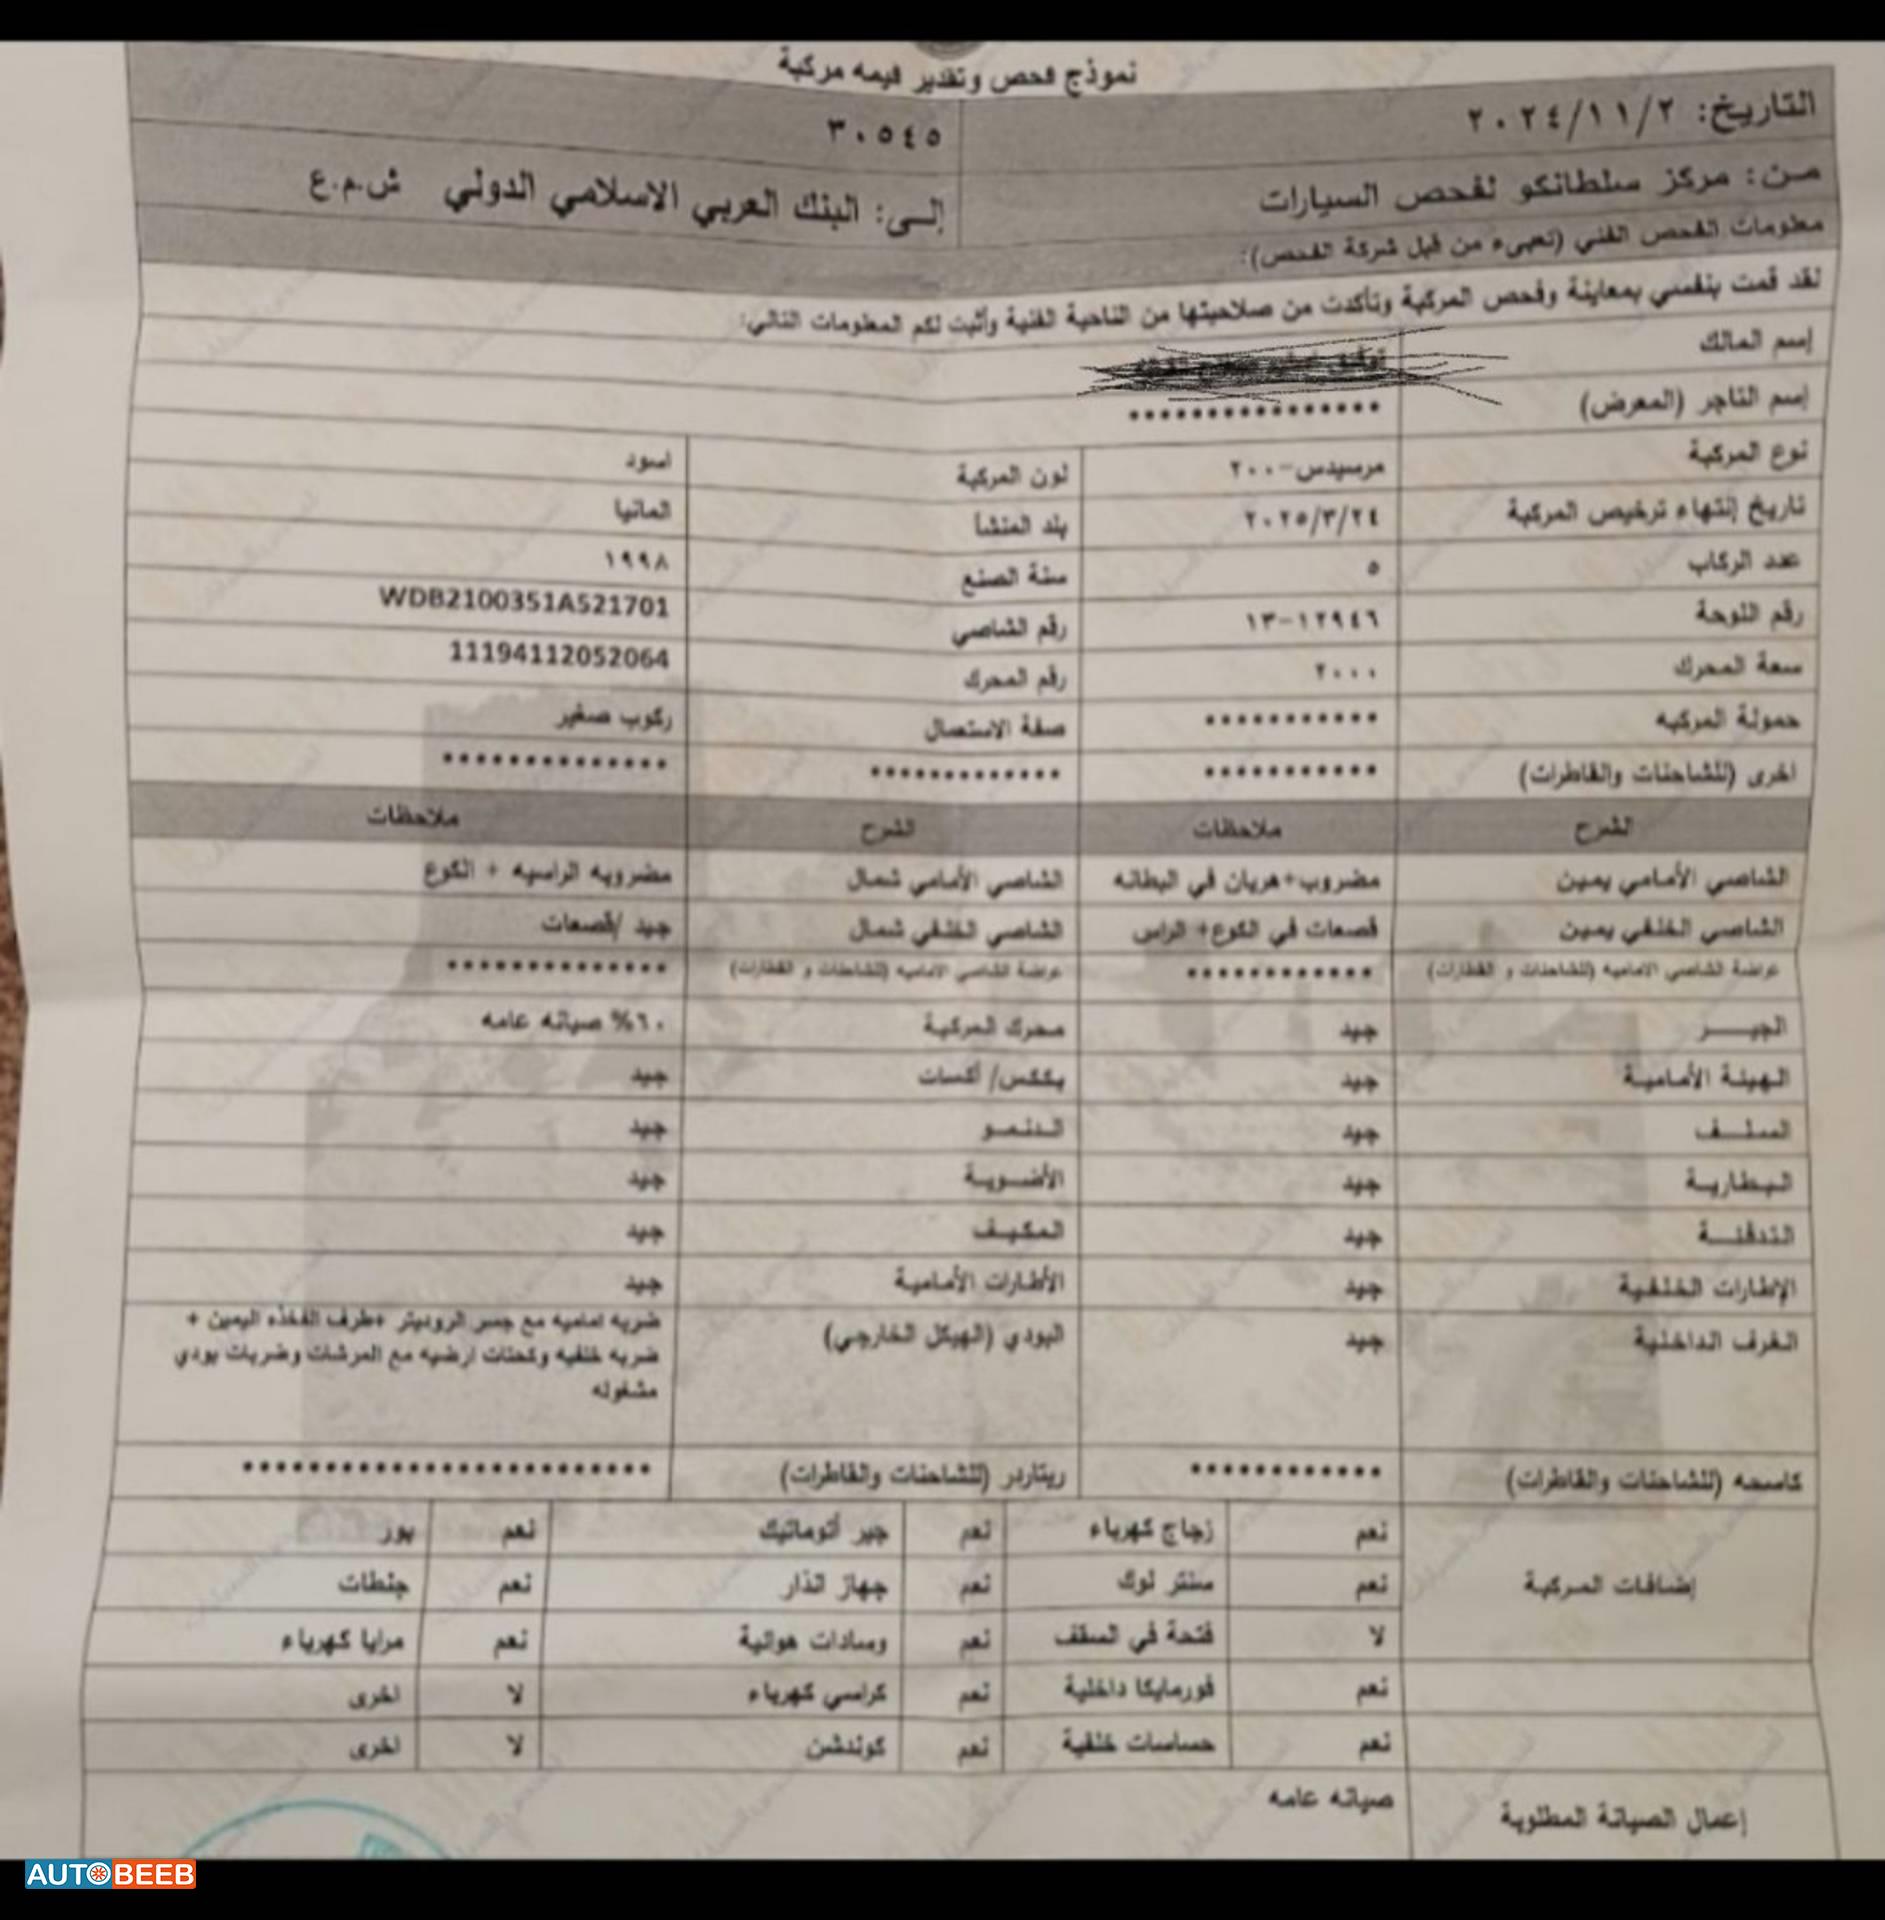 نموذج فحص وتقدير قيمه مركبة
التاريخ: ٢٠٢٤/١١/٢
٣٠٥٤٥
من: مركز سلطانكو لفحص السيارات
إلـى: البنك العربي الاسلامي الدولي ش.م.ع
معلومات الفحص الفني (تعبىء من قبل شركة الفحص):
لقد قمت بنفسي بمعاينة وفحص المركبة وتأكدت من صلاحيتها من الناحية الفنية وأثبت لكم المعلومات التالي:
إسم المالك
إسم التاجر (المعرض) ****************
نوع المركبة مرسيدس-٢٠٠ لون المركبة اسود
تاريخ إنتهاء ترخيص المركبة ٢٠٢٥/٣/٢٤ بلد المنشأ المانيا
عدد الركاب ٥ سنة الصنع ١٩٩٨
رقم اللوحة ١٣-١٢٩٤٦ رقم الشاصي WDB2100351A521701
سعة المحرك ٢٠٠٠ رقم المحرك 11194112052064
حمولة المركبه *********** صفة الاستعمال ركوب صغير
اخرى (للشاحنات والقاطرات) *********** ************* **************
الشرح ملاحظات الشرح ملاحظات
الشاصي الأمامي يمين مضروب+هريان في البطانه الشاصي الأمامي شمال مضروبه الراسيه + الكوع
الشاصي الخلفي يمين قصعات في الكوع+ الراس الشاصي الخلفي شمال جيد /قصعات
عراضة الشاصي الاماميه (للشاحنات و القطارات) ************ عراضة الشاصي الاماميه (للشاحنات و القطارات) **************
الجيـــر جيد محرك المركبة ٦٠% صيانه عامه
الهيئة الأمامية جيد بككس/ أكسات جيد
السلـــف جيد الدنمـو جيد
البطاريـة جيد الأضـويـة جيد
التدفئـــة جيد المكيـف جيد
الإطارات الخلفية جيد الأطارات الأمامية جيد
الغرف الداخلية جيد البودي (الهيكل الخارجي) ضربه اماميه مع جسر الروديتر +طرف الفخذه اليمين +
ضربه خلفيه وكحتات ارضيه مع المرشات وضربات بودي
مشغوله
كاسحه (للشاحنات والقاطرات) ************ ريتاردر (للشاحنات والقاطرات) *************************
إضافات المركبة
نعم زجاج كهرباء نعم جير أتوماتيك نعم بور
نعم سنتر لوك نعم جهاز انذار نعم جنطات
لا فتحة في السقف نعم وسادات هوائية نعم مرايا كهرباء
نعم فورمايكا داخلية نعم كراسي كهرباء لا اخرى
نعم حساسات خلفية نعم كوندشن لا اخرى
إعمال الصيانة المطلوبة صيانه عامه
AUTOBEEB